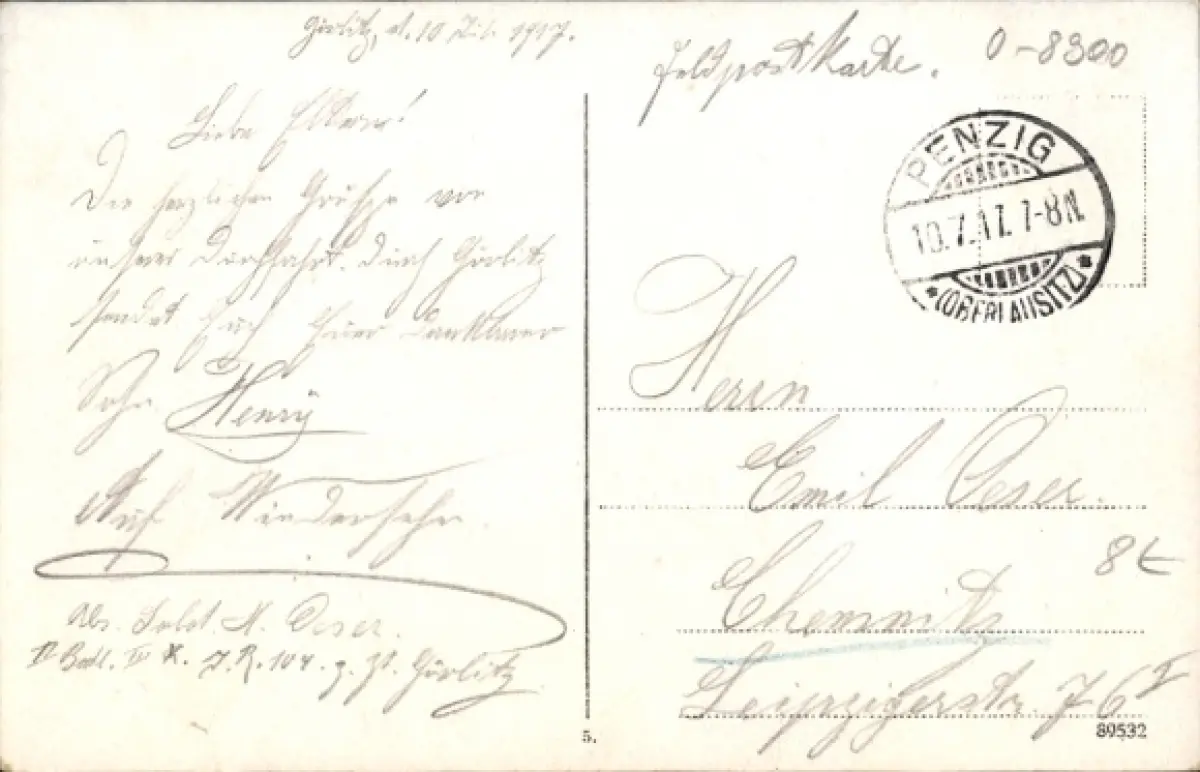 Görlitz, d. 10 Juli 1917.
Liebe Eltern!
Die herzlichen Grüße von
unserer Durchfahrt durch Görlitz
sendet Euch Euer dankbarer
Sohn Henry
Auf Wiedersehn.
Abs. Sold. H. Oeser.
II Batl. K. J. R. 104. z. Zt. Görlitz
Feldpostkarte. 0-8300
PENZIG
10.7.17. 7-8 N.
* (OBERLAUSITZ) *
Herrn
Emil Oeser.
8 t
Chemnitz
Leipzigerstr. 76 I
5.
89532